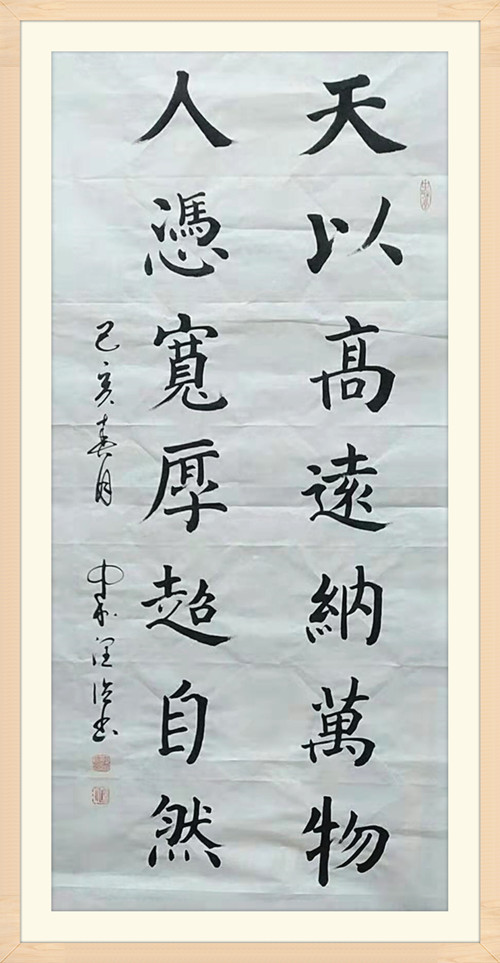 天以高遠納萬物
人憑寬厚超自然
己亥春月